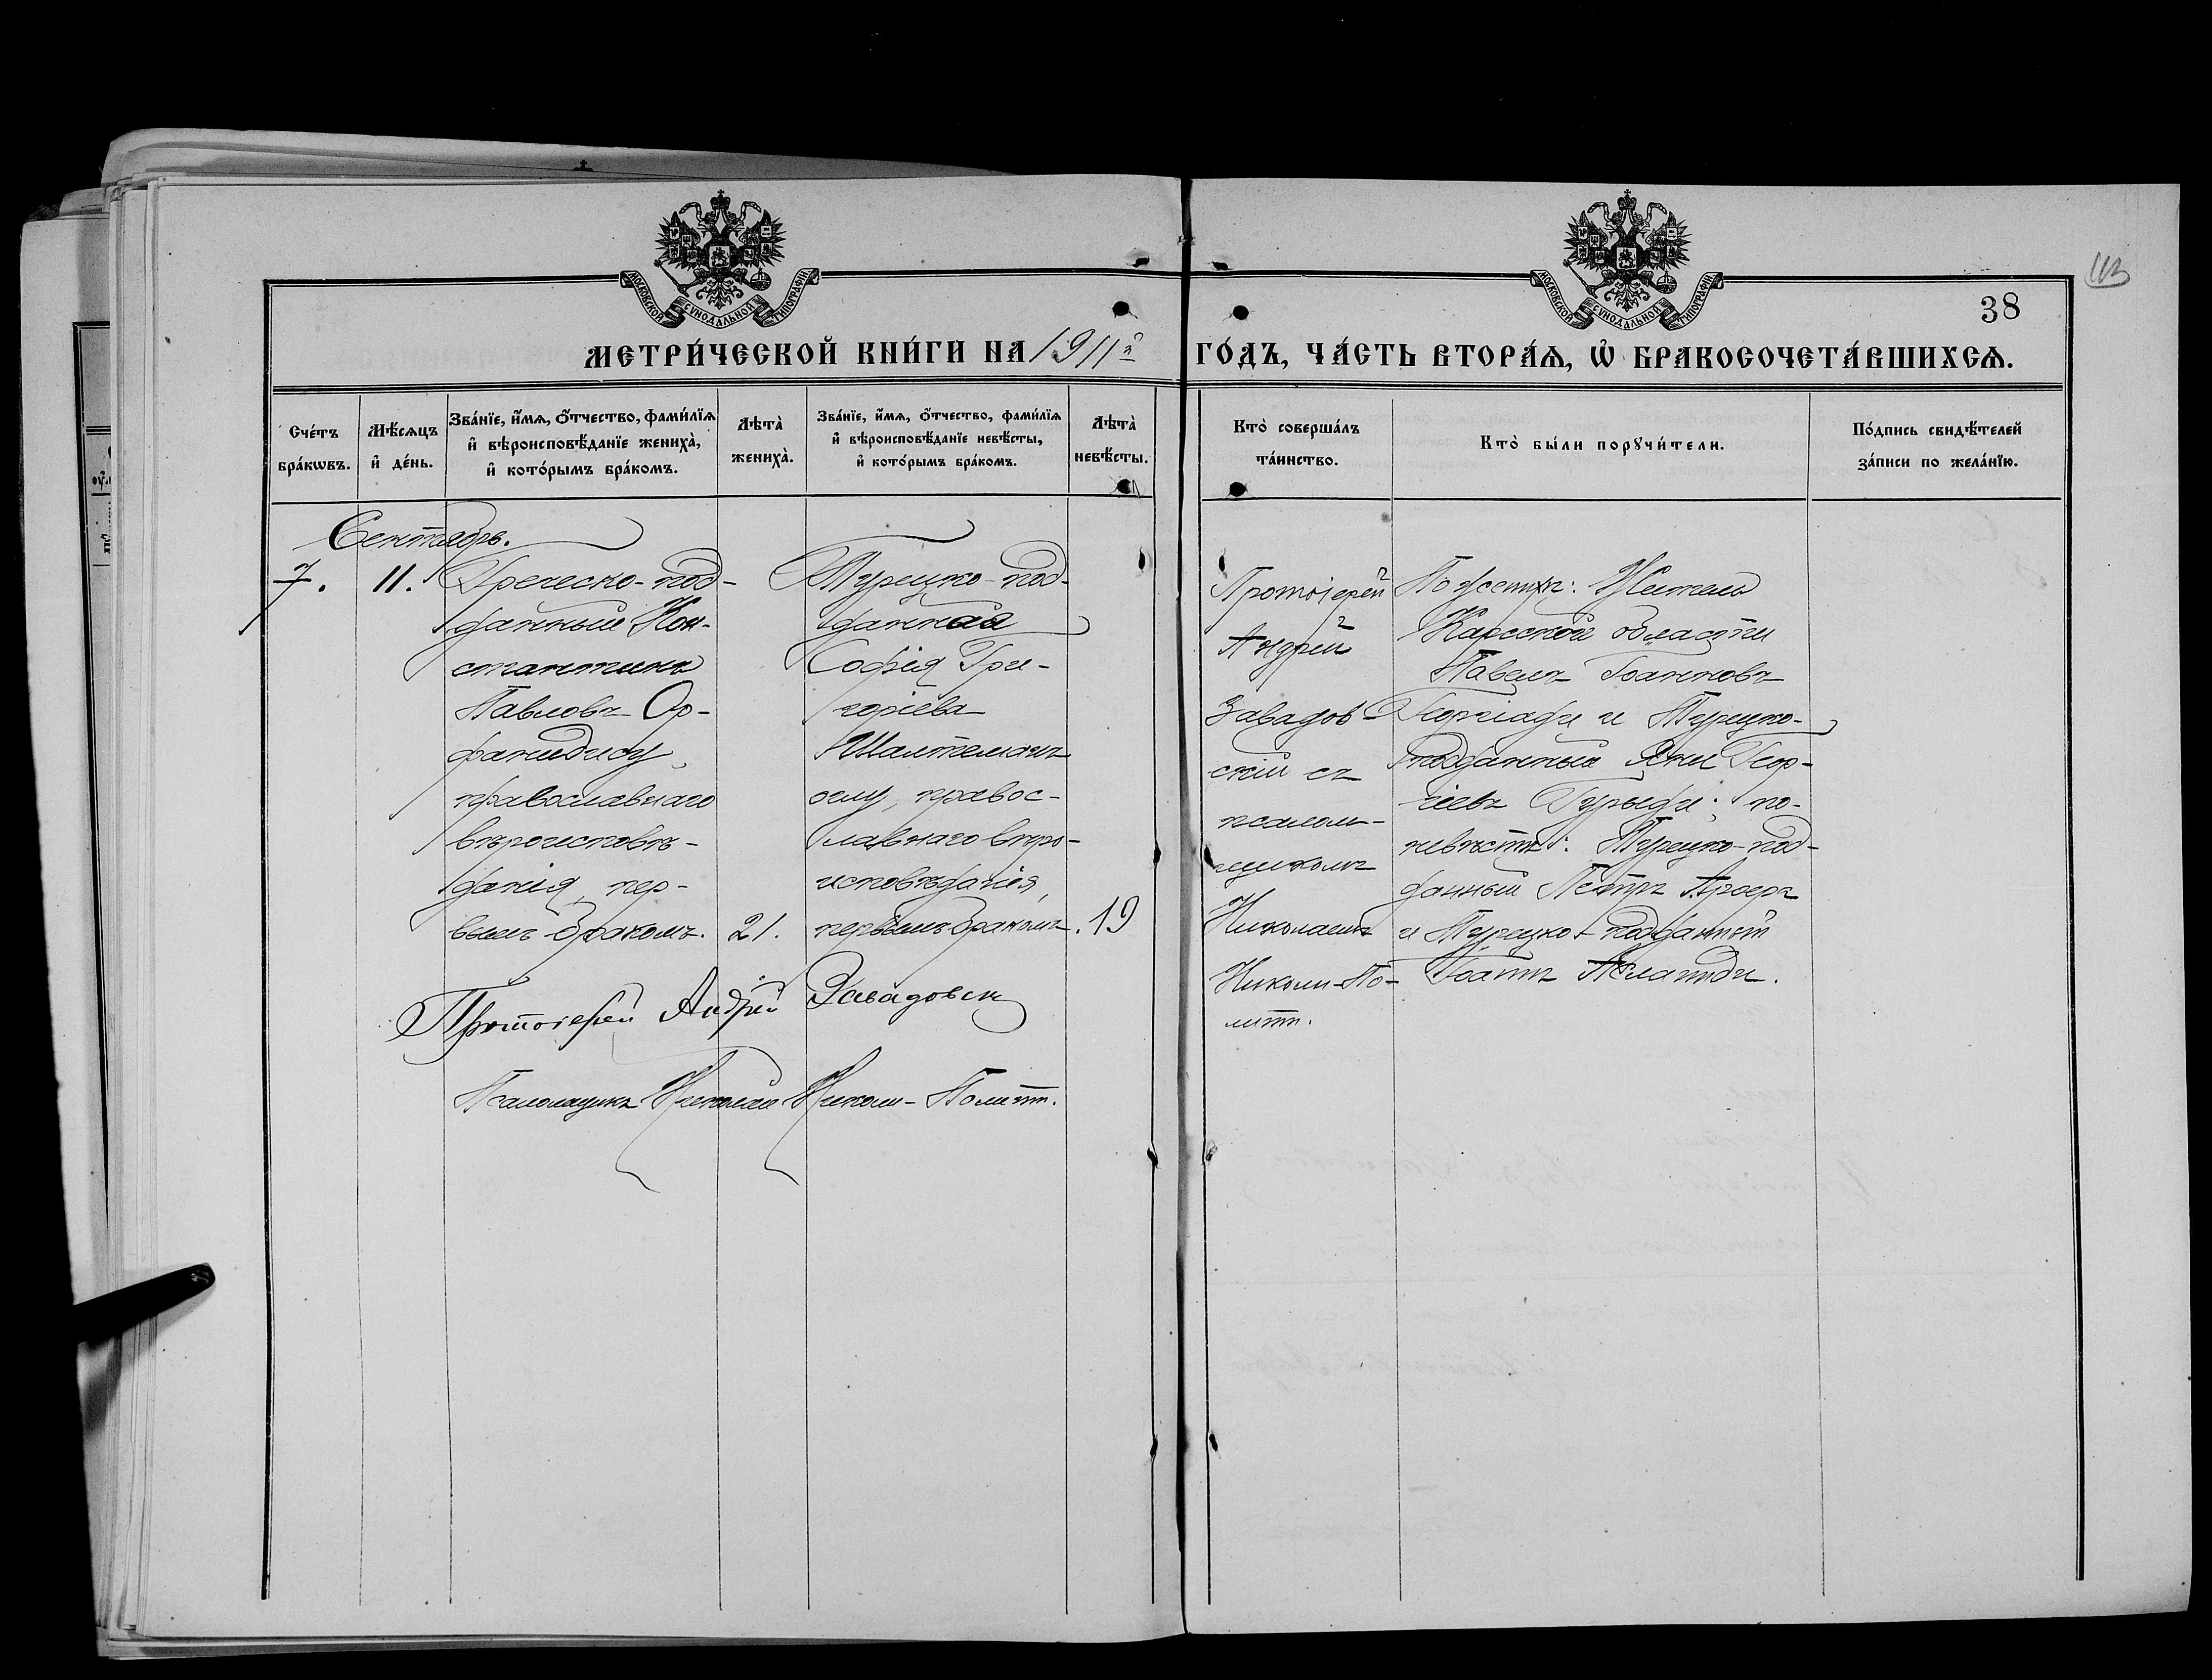 МОСКОВСКОЙ СѴНОДАЛЬНОЙ ТИПОГРАФІИ
МОСКОВСКОЙ СѴНОДАЛЬНОЙ ТИПОГРАФІИ
113
38
МЕТРИ́ЧЕСКОЙ КНИ́ГИ НА 1911й ГО́ДЪ, ЧА́СТЬ ВТОРА́Ѧ, Ѡ БРАКОСОЧЕТА́ВШИХСѦ.
Сче́тъ
бра́кѡвъ.
Мѣ́сѧцъ
и҆ де́нь.
Зва́нїе, и҆́мѧ, ѻ҆́тчество, фами́лїѧ
и҆ вѣроисповѣ́данїе жениха̀,
и҆ кото́рымъ бра́комъ.
Лѣта̀
жениха̀.
Зва́нїе, и҆́мѧ, ѻ҆́тчество, фами́лїѧ
и҆ вѣроисповѣ́данїе невѣ́сты,
и҆ кото́рымъ бра́комъ.
Лѣта̀
невѣ́сты.
Кто̀ соверша́лъ
та́инство.
Кто̀ бы́ли порꙋчи́тели.
По́дпись свидѣ́телей
за́писи по жела́нїю.
Сентябрь.
7.
11.
Греческо-под-
данный Кон-
стантинъ
Павловъ Ор-
фанидису,
православнаго
вѣроисповѣ-
данія, пер-
вымъ бракомъ.
21.
Турецко-под-
данная
Софія Гри-
горіева
оглу, правос-
лавнаго вѣро-
исповѣданія,
первымъ бракомъ.
19
Протоіерей
Андрей
Завадов-
скій съ
псалом-
щикомъ
Николаемъ
Николи-По-
литъ.
По женихѣ: Житель
Карсской области
Павелъ Іоанновъ
Георгіади и Турецко-
подданный Яни Геор-
гіевъ по
невѣстѣ: Турецко-под-
данный Петръ
и Турецко-подданный
Іоаннъ
Протоіерей Андрей Завадовскій
Псаломщикъ Николай Николи-Политъ.